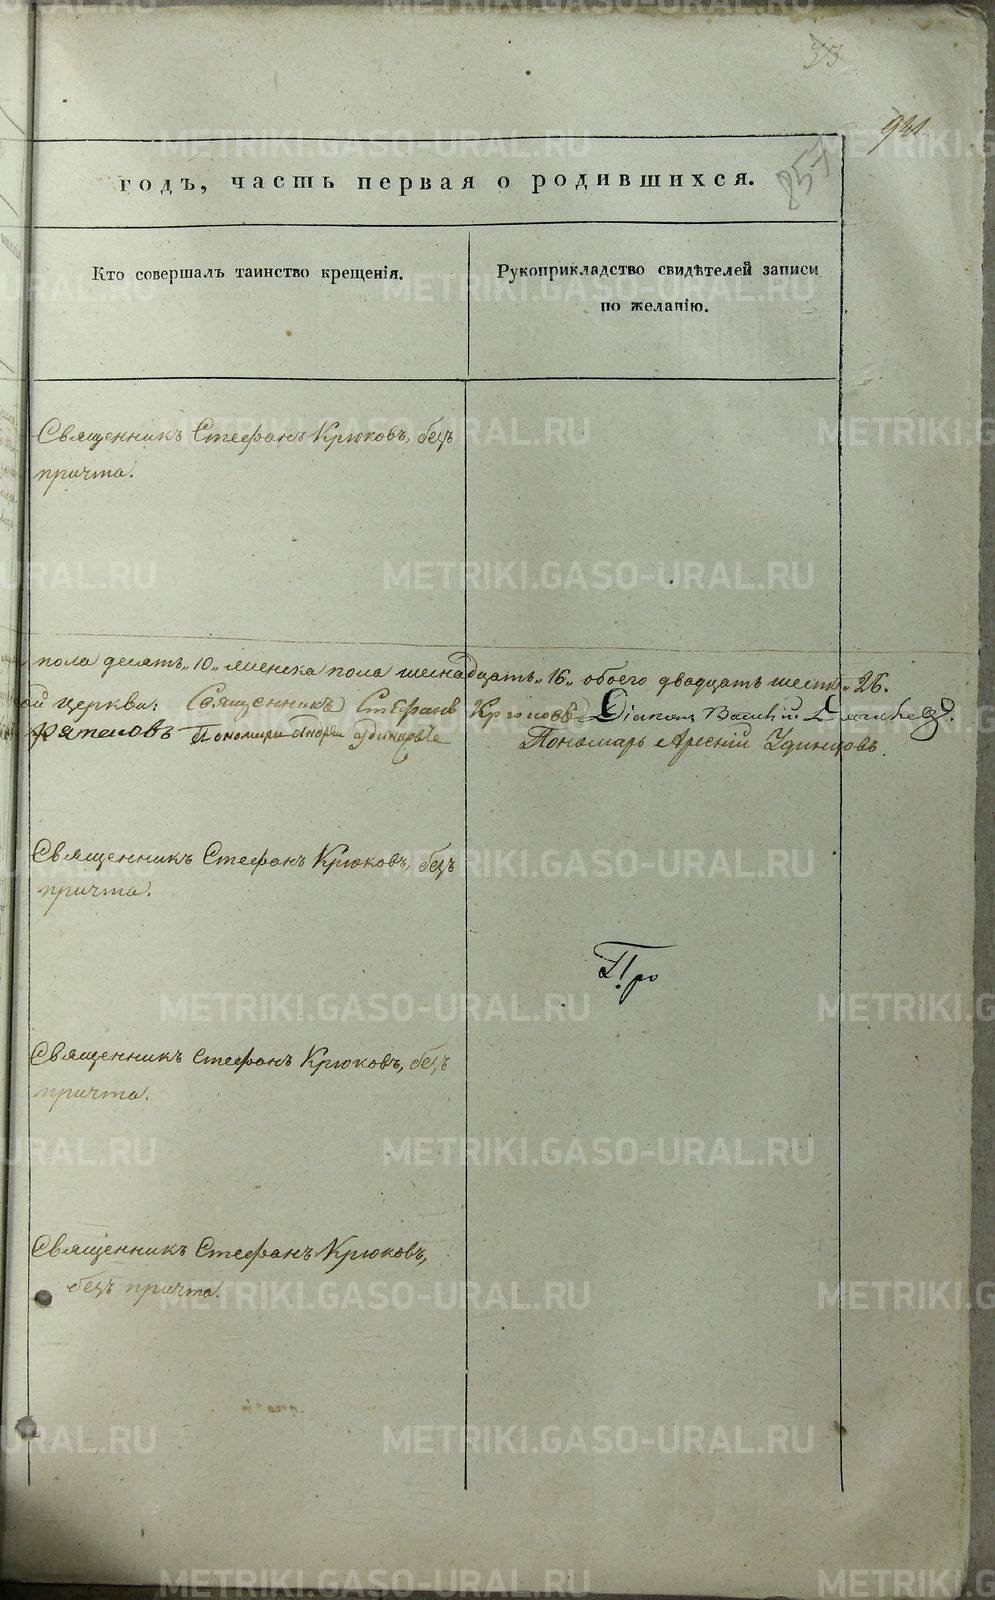 33
931
годъ, часть первая о родившихся.
Кто совершалъ таинство крещенія.
Рукоприкладство свидѣтелей записи
по желанію.
Священникъ Стефанъ Крюковъ, безъ
причта.
пола десять „10„ женска пола шестнадцать „16„ обоего двадцать шесть „26.
ой церкви: Священникъ Стефанъ Крюковъ Діаконъ
Пономарь Андрей Удинцовъ Пономарь Арсеній Удинцовъ.
Священникъ Стефанъ Крюковъ, безъ
причта.
Про
Священникъ Стефанъ Крюковъ, безъ
причта.
Священникъ Стефанъ Крюковъ,
безъ причта.
METRIKI.GASO-URAL.RU